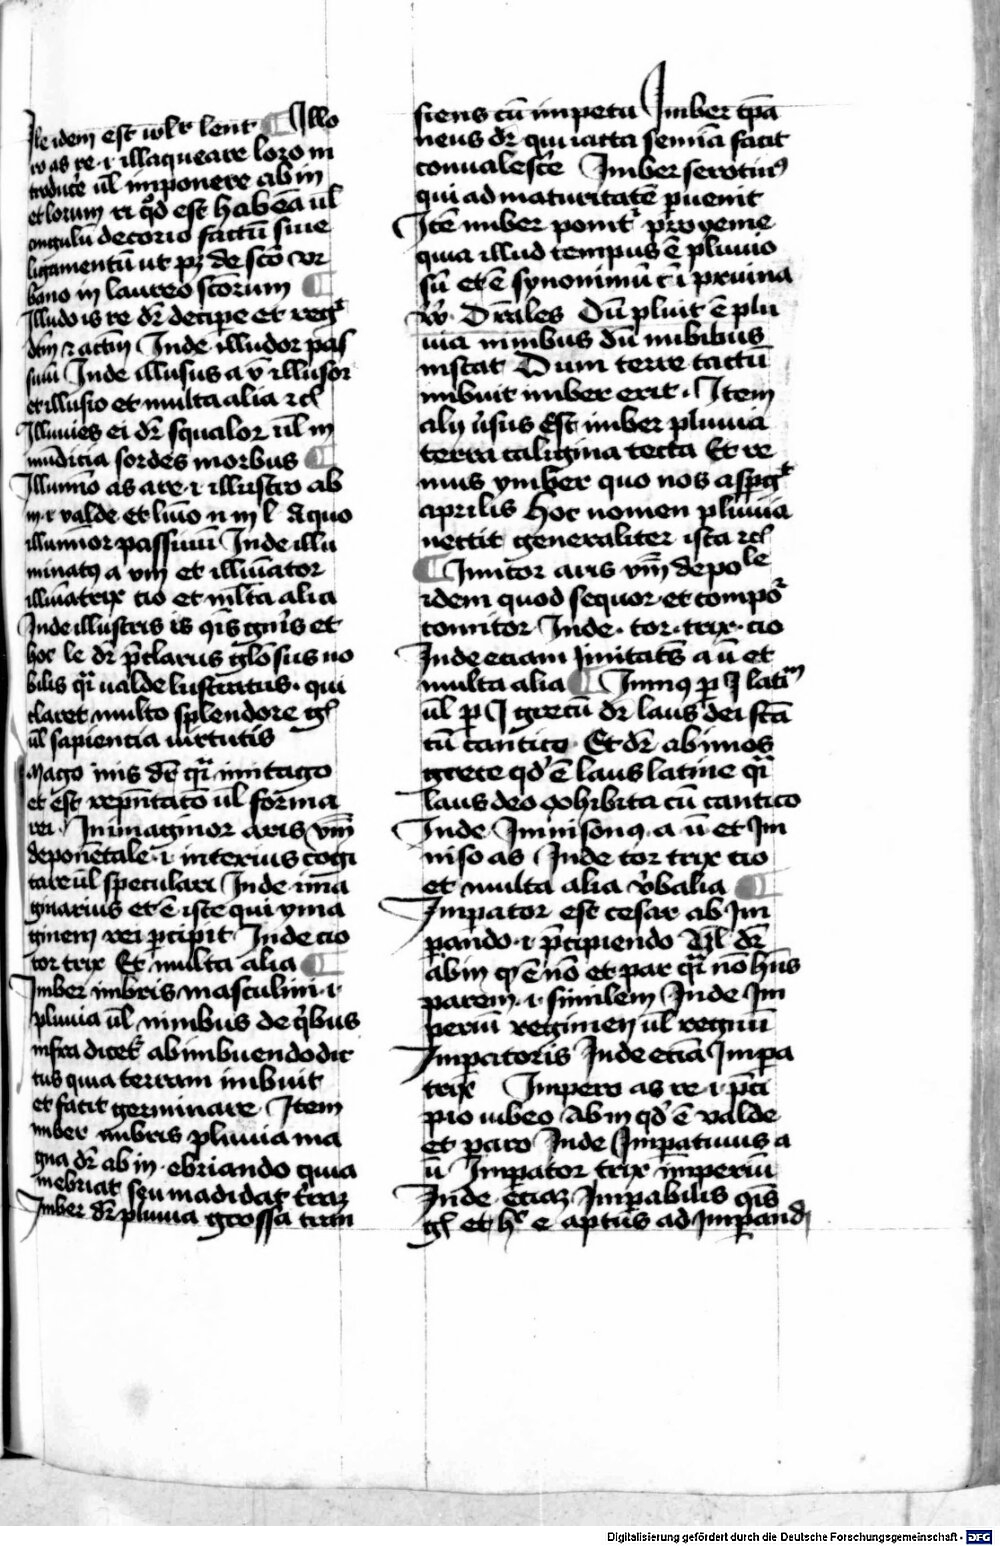 Ile idem est wlt lent Illo
ro as re .i. illaqueare loro in
troducere ul imponere ab in
et lorum ri qd est habena ul
cingulū de corio factū siue
ligamentū ut pz de sco vr
bano in laureo scorum
Illudo is re dr decipe et regit
dtm et actm Inde illudor pas
siuū Inde illusus a ū illusor
et illusio et multa alia rcl
Illuuies ei dr squalor ul in
mūdicia sordes morbus
Illumino as are .i. illustro ab
in .i. valde et limo n in l A quo
illuminor passiuū Inde illu
minatus a um et illuīator
illuīatrix tio et mlta alia
Inde illustris is oīs gnis et
hoc le dr pclarus gloiosus no
bilis qi ualde lustratus. qui
claret multo splendore gnis
ul sapiencia uirtutis
Imago inis dr qi imitago
et est repntaco ul forma
rei. Inimaginor aris um
deponētale .i. interius cogi
tare ul speculari Inde ima
ginarius et ē iste qui yma
ginem rei pcipit Inde tio
tor trix Et multa alia
Imber imbris masculini .i.
pluuia ul nimbus de qbus
infra dicetr ab imbuendo dic
tus quia terram imbuit
et facit germinare Item
imber imbris pluuia ma
gna dr ab in .ebriando quia
inebriat seu madidat terraz
Imber dr pluuia grossa tran
siens cū impetu Imber tpa
neus dr qui iacta semīa facit
conualescere Imber serotinus
qui ad maturitatē puenit
Itē imber ponitr pro yeme
quia illud tempus ē pluuio
sū et ē synonimū ī pruina
vv. Drales Dū pluit ē plu
uia nimbus dū nubibus
instat Dum terre tactū
imbuit imber erit. Item
alij usus Est imber pluuia
terra caligina tecta Et re
mus ymber quo nos aspgit
aprilis Hoc nomen pluuia
nectit generaliter ista rcl
Imitor aris um depole
idem quod sequor et compor
comitor Inde. tor. trix. tio
Inde eciam Imitats a ū et
multa alia Imnus p I latim
ul p I grecū dr laus dei scta
cū cantico Et dr ab imos
grece qd ē laus latine qi
laus deo exhibita cū cantico
Inde Imnisonus. a ū et Im
niso as Inde tor trix tio
et multa alia vbalia
Impator est cesar ab Im
pando .i. pcipiendo Ul dr
ab in qd ē nō et par qi nō hns
parem .i. similem Inde Im
periū regimen ul regnū
Impatoris Inde eciā Impa
trix Impero as re .i. pci
pio iubeo Ab in qd ē valde
et paro Inde Impatiuus a
ū Impator trix imperiū
Inde eciaz Impabilis oīs
gl et hc e aptus ad Impand
Digitalisierung gefördert durch die Deutsche Forschungsgemeinschaft - DFG